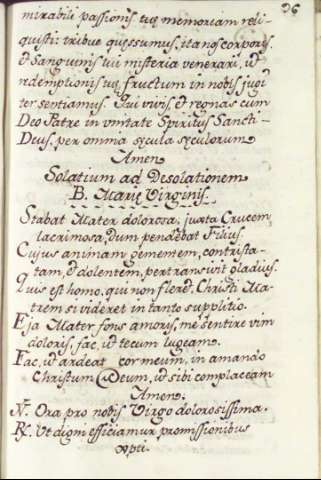 96
mirabili passionis tuę memoriam reli-
quisti: tribue quęsumus, ita nos corporis
& Sanguinis tui misteria venerari, ut
redemptionis tuę fructum in nobis jugi
ter sentiamus. Qui vivis, & regnas cum
Deo Patre in unitate Spiritus Sancti -
Deus, per omnia sęcula sęculorum
Amen
Solatium ad Desolationem
B. Marię Virginis.
Stabat Mater dolorosa, juxta Crucem
lacrimosa, dum pendebat Filius.
Cujus animam gementem, contrista-
tam, & dolentem, pertransivit gladius.
Quis est homo, qui non fleret, Christi Ma-
trem si videret in tanto supplitio.
Eja Mater fons amoris, me sentire vim
doloris, fac, ut tecum lugeam.
Fac, ut ardeat cor meum, in amando
Christum Deum, ut sibi complaceam
Amen.
V. Ora pro nobis Virgo dolorosissima.
R. Ut digni efficiamur promissionibus
Xpti.